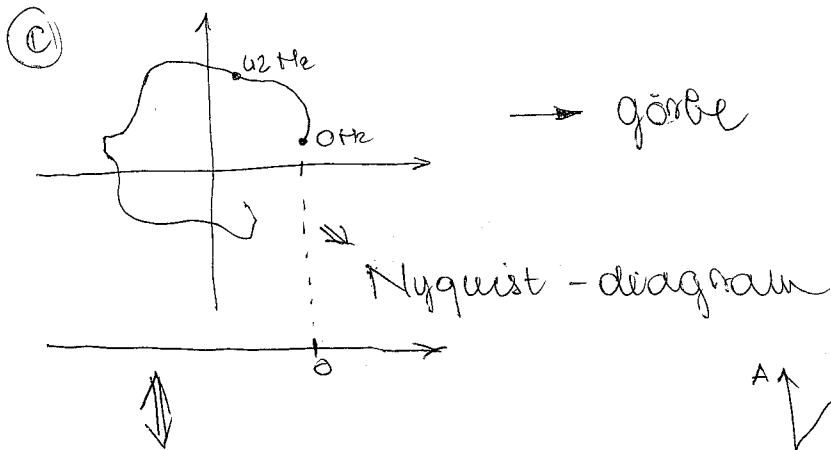 C
42 Hz
0 Hz
→ görbe
⇒ Nyquist - diagram
0
A